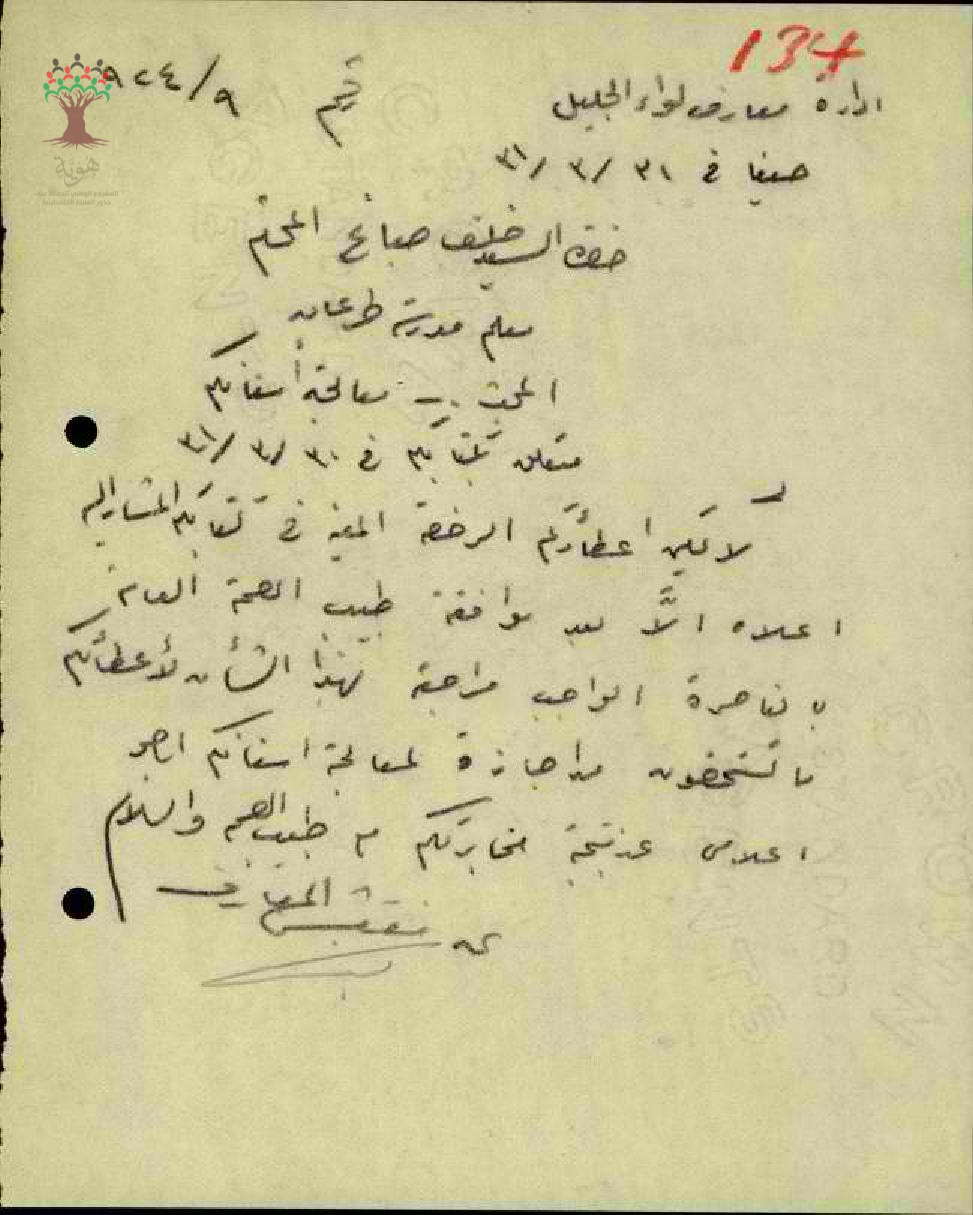 134
ادارة معارف لواء الجليل
رقم ٩/٩٢٤
حيفا في ٣١/٣/٣١
حضرة السيد خليف صباغ المحترم
معلم مدرسة طرعان
المبحث :- معالجة أسنانكم
متعلق بكتابكم في ٣٠/٣/٣١
لا يمكن اعطاؤكم الرخصة المعينة في كتابكم المشار اليه
اعلاه الَّا بعد موافقة طبيب الصحة العامة
بالناصرة الواجب مراجعته بهذا الشأن لأعطائكم
ما تستحقون من اجازة لمعالجة اسنانكم ارجو
اعلامي عن نتيجة مخابرتكم مع طبيب الصحة والسلام
عن مفتش المعارف
هوية